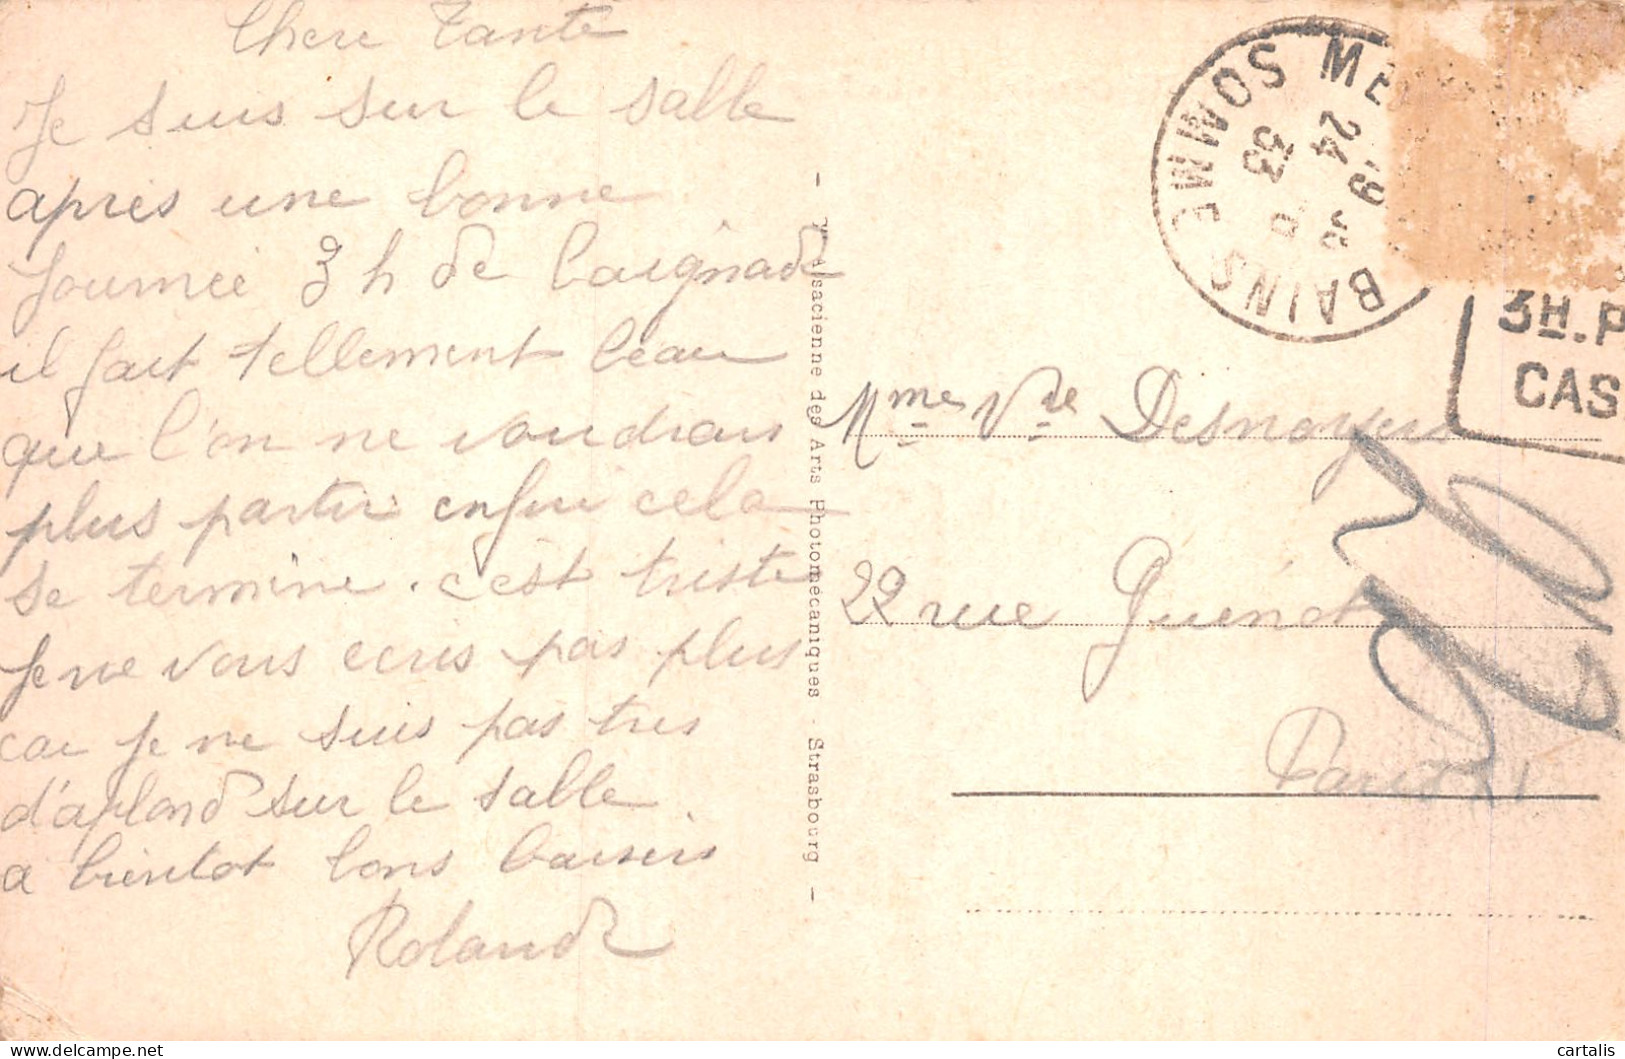 Chere Tante
Je suis sur le salle
apres une bonne
Journee 3 h de baignade
il fait tellement beau
que l'on ne voudrais
plus partir enfin cela
se termine. c'est triste
Je ne vous ecris pas plus
car je ne suis pas tres
d'aplond sur le salle.
a bientot bons baisers
Roland
sacienne des Arts Photomécaniques - Strasbourg -
BAINS SOMME
24
33
3H.P
CAS
Mme Vve Desnoyers
22 rue Guénot
Paris XI
cartalis